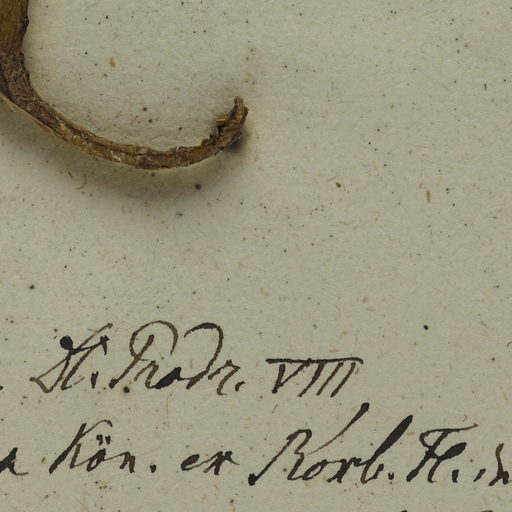 Fl. Prodr. VIII
a Kön. ex Roxb. Fl. in